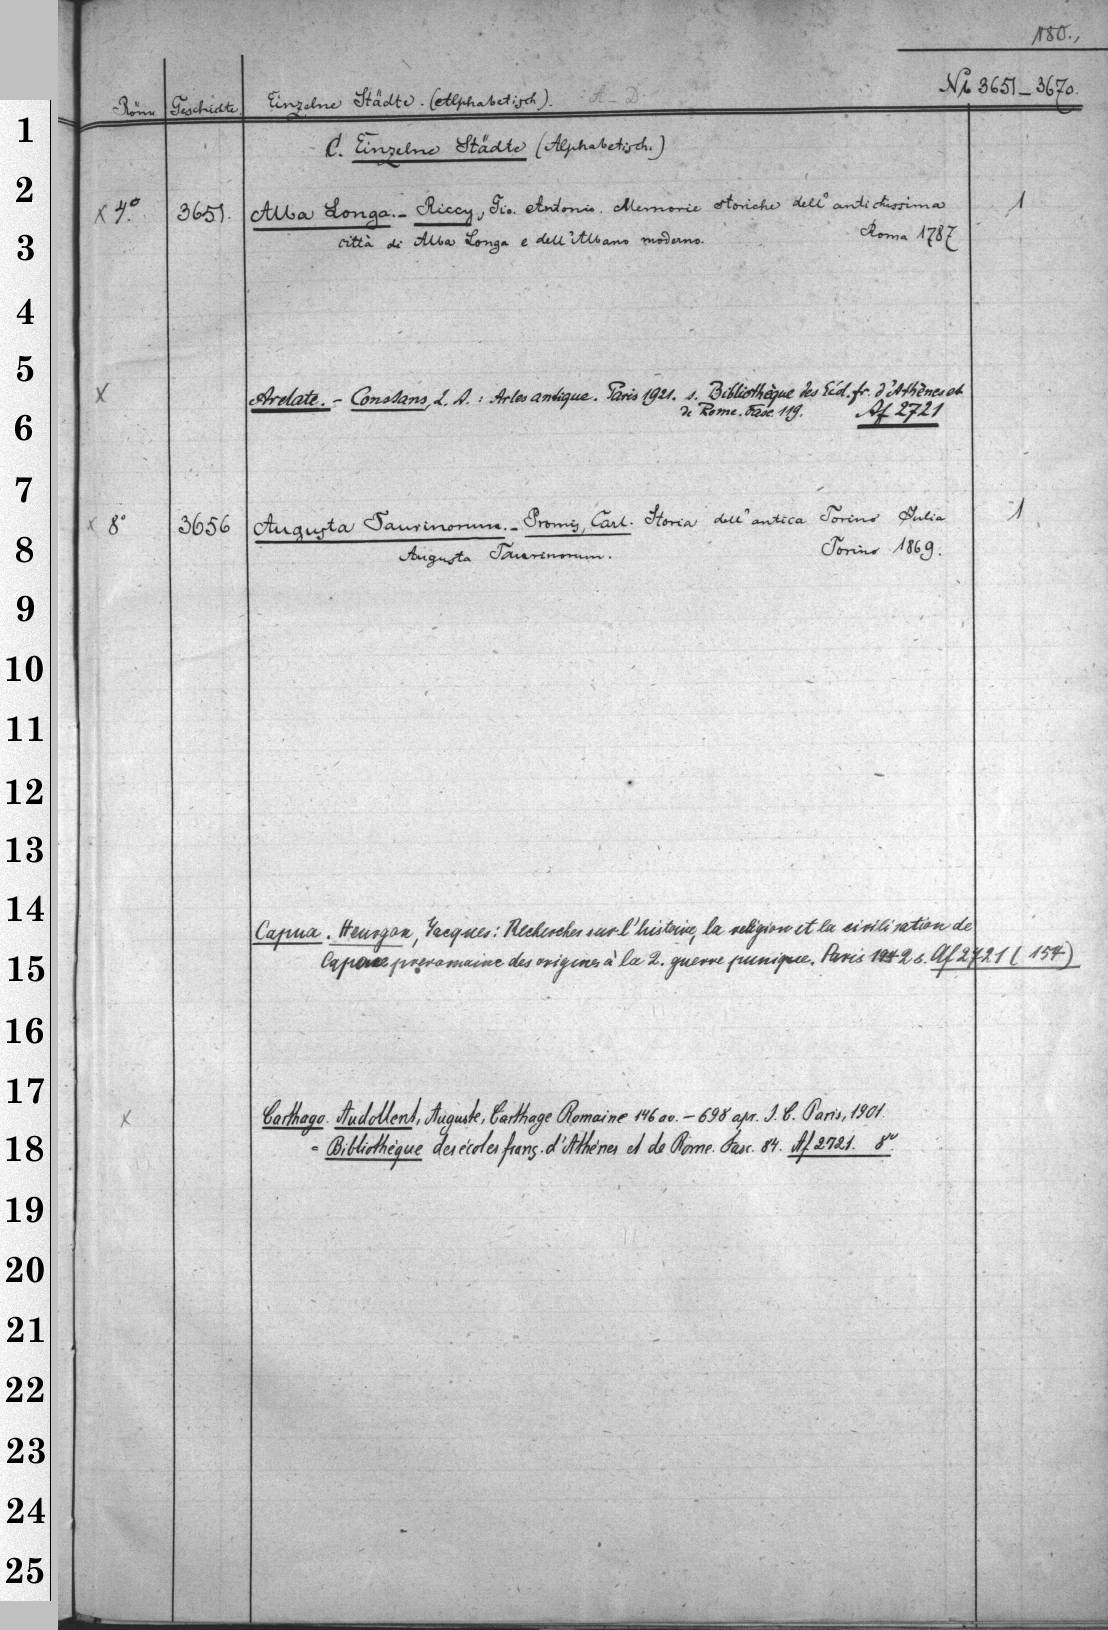 180.,
Röm. Geschichte Einzelne Städte. (Alphabetisch). A-D. № 3651-3670.
C. Einzelne Städte (Alphabetisch.)
x 4.° 3651. Alba Longa.- Riccy, Gio. Antonio. Memorie storiche dell' antichissima 1
città di Alba Longa e dell'Albano moderno. Roma 1787
x Arelate. - Constans, L. A. : Arles antique. Paris 1921. s. Bibliothèque des Écol. fr. d'Athènes et
de Rome. Fasc. 119. Af 2721
x 8° 3656 Augusta Taurinorum. - Promis, Carl. Storia dell' antica Torino Julia 1
Augusta Taurinorum. Torino 1869.
Capua. Heurgon, Jacques: Recherches sur l'histoire, la religion et la civilisation de
Capoue preromaine des origines à la 2. guerre punique. Paris 1942 s. Af 2721 ( 154)
x Carthago. Audollent, Auguste, Carthage Romaine 146 av. - 698 apr. J. C. Paris, 1901.
= Bibliothèque des écoles franç. d'Athénes et de Rome. Fasc. 84. Af 2721. 8°.
1
2
3
4
5
6
7
8
9
10
11
12
13
14
15
16
17
18
19
20
21
22
23
24
25